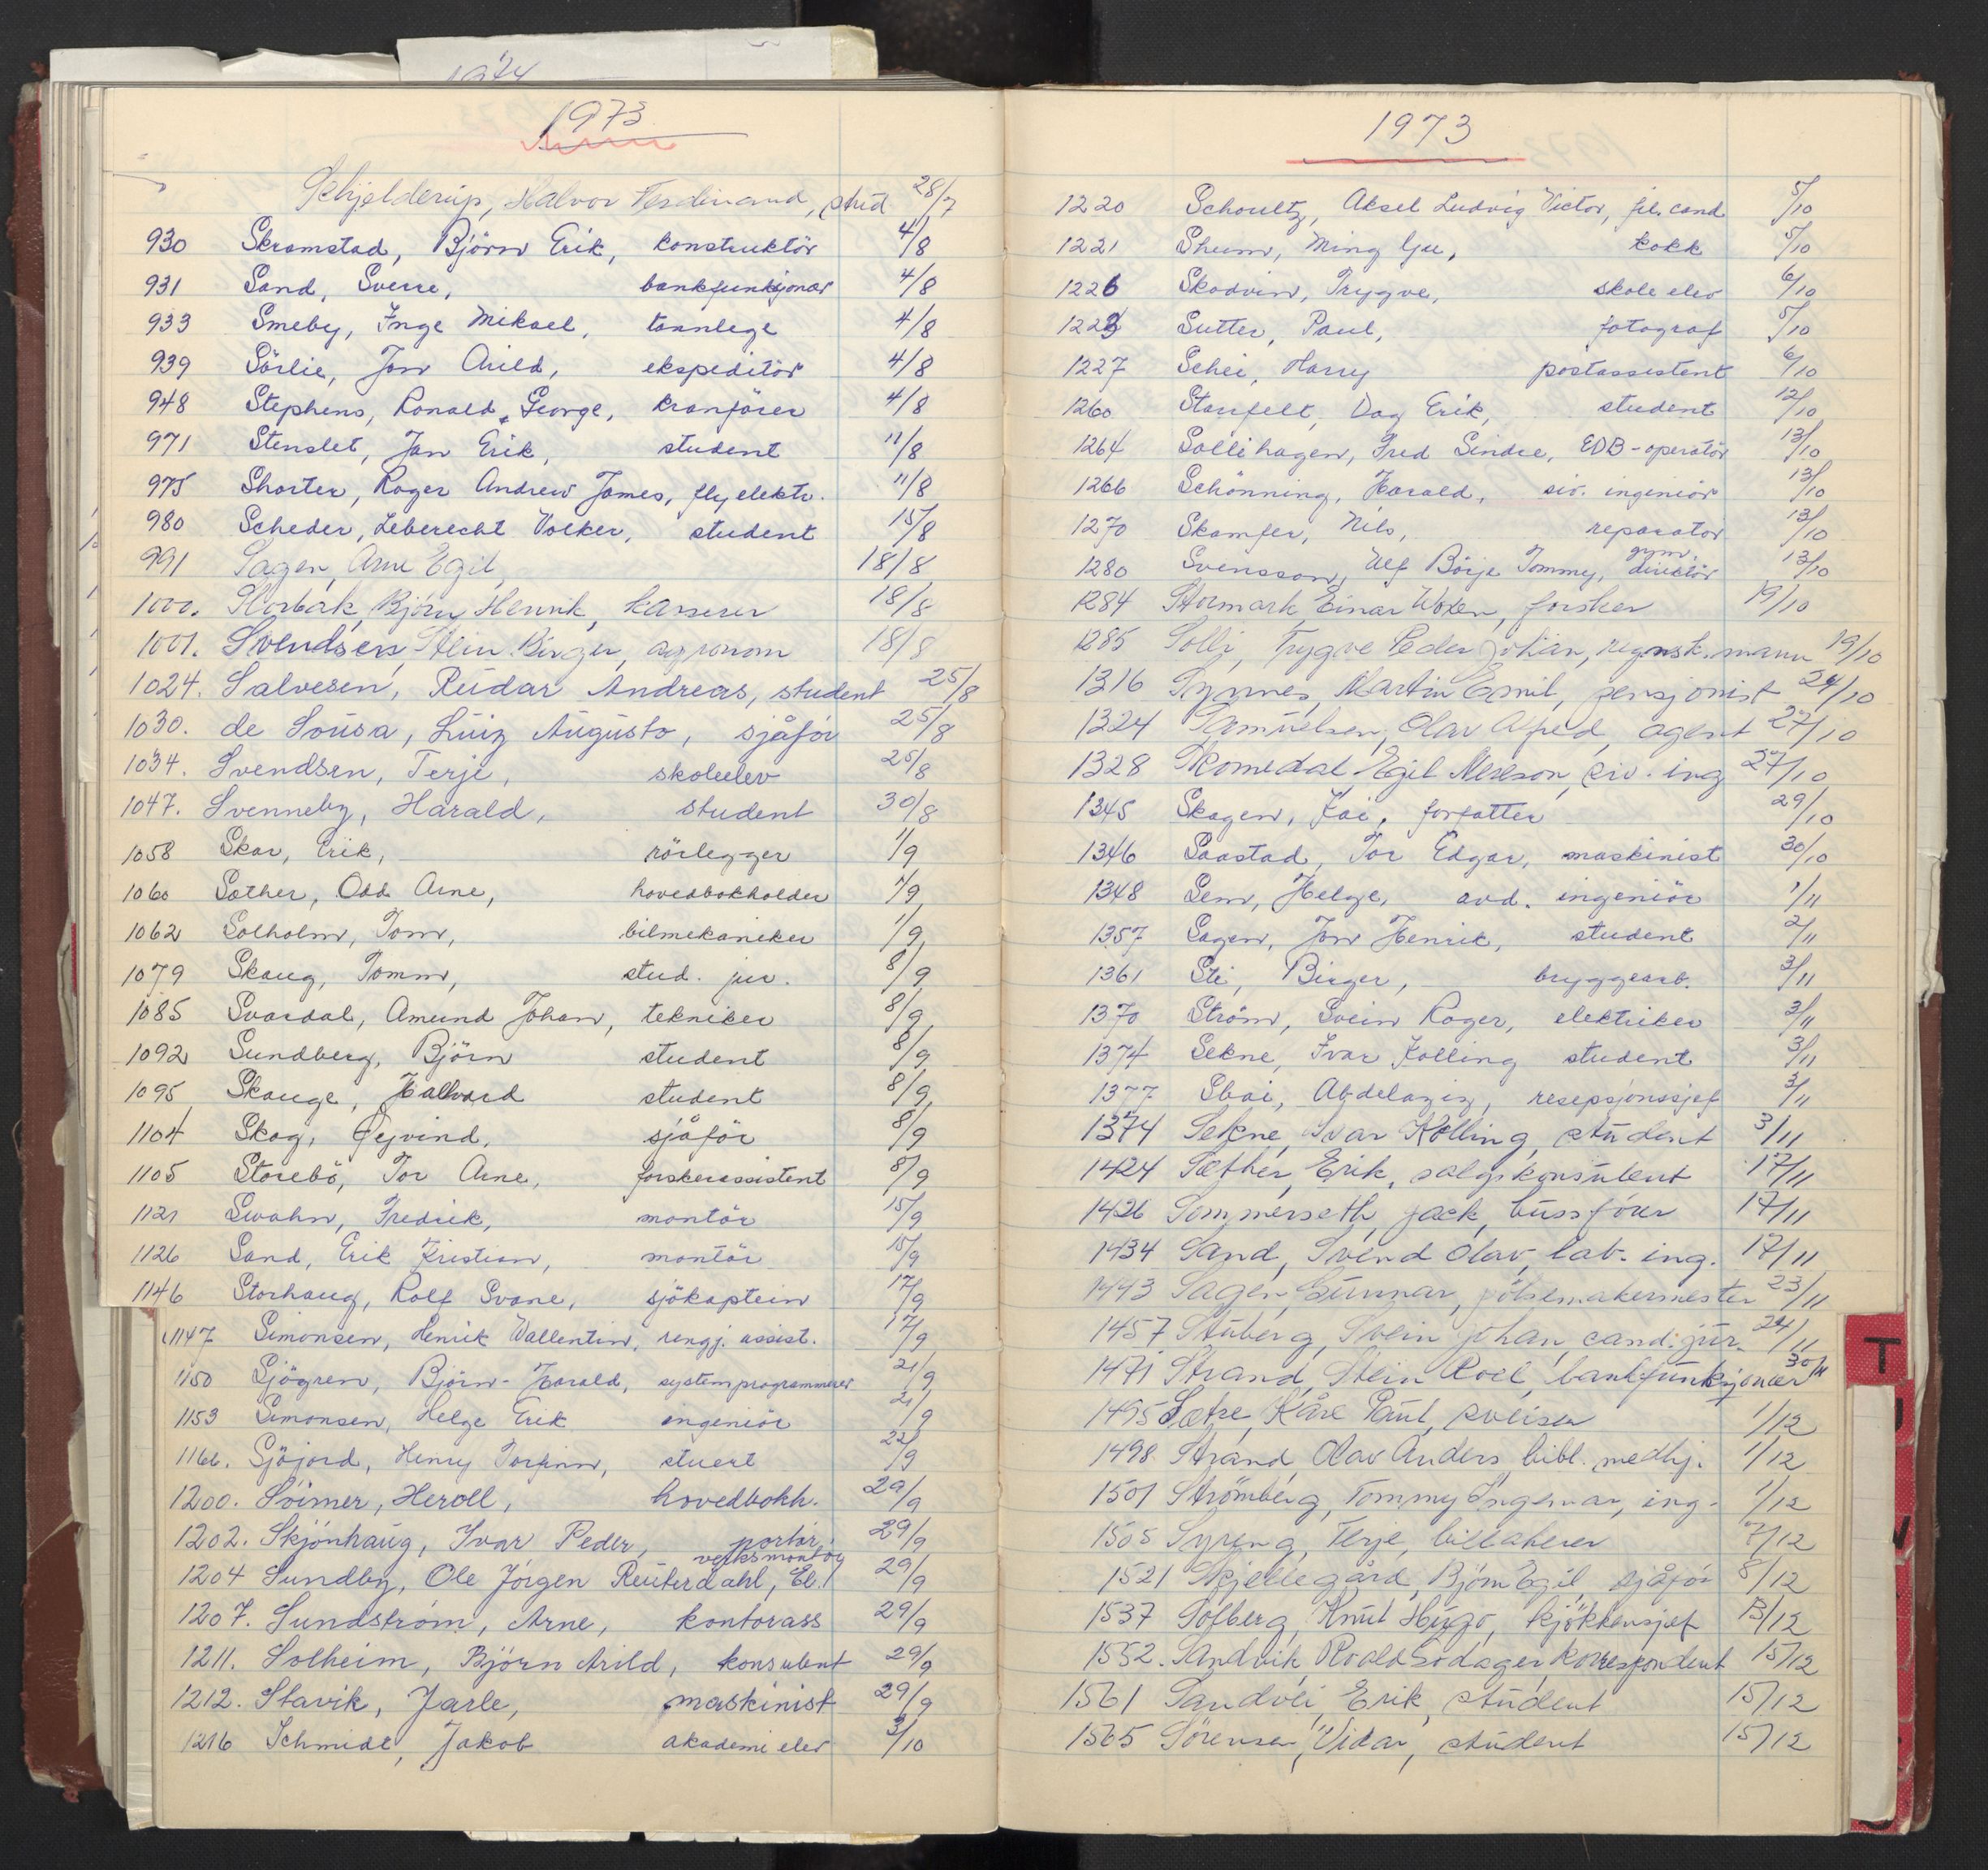 1974
1973
Schjelderup, Halvor Ferdinand, stud 28/7
930 Skramstad, Björn Erik, konstruktör 4/8
931 Sand, Sverre, bankfunksjonær 4/8
933 Smeby, Inge Mikael, tannlege 4/8
939 Sörlie, Jon Arild, ekspeditör 4/8
948 Stephens, Ronald George, kranförer 4/8
971 Stenslet, Jan Erik, student 11/8
975 Shorter, Roger Andrew James, flyelektr. 11/8
980 Scheder, Leberecht Volker, student 15/8
991 Sagen, Arne Egil, 18/8
1000. Storbäk, Björn Henrik, kasserer 18/8
1001. Svendsen, Stein Birger, agronom 18/8
1024. Salvesen, Reidar Andreas, student 25/8
1030. de Sousa, Luiz Augusto, sjåför 25/8
1034. Svendsen, Terje, skoleelev 25/8
1047. Svenneby, Harald, student 30/8
1058 Skar, Erik, rörlegger 1/9
1060 Sæther, Odd Arne, hovedbokholder 1/9
1062 Solholm, Tom, bilmekaniker 1/9
1079 Skaug, Tomm, stud. jur. 8/9
1085 Svardal, Amund Johan, tekniker 8/9
1092 Sundberg, Björn student 8/9
1095 Skauge, Hallvard student 8/9
1104 Skog, Øyvind, sjåför 8/9
1105 Storebö, Tor Arne, forskerassistent 8/9
1121 Swahn, Fredrik, montör 15/9
1126 Sand, Erik Kristian, montör 15/9
1146 Storhaug, Rolf Svane, sjökaptein 17/9
1147 Simonsen, Henrik Wallentin, rengj. assist. 17/9
1150 Sjögren, Björn-Harald, systemprogrammerer 21/9
1153 Simonsen, Helge Erik ingeniör 21/9
1166. Sjöjord, Henry Torfinn, stuert 22/9
1200. Svimer, Heroll, hovedbokh. 29/9
1202. Skjönhaug, Ivar Peder, portör 29/9
1204 Sundby, Ole Jörgen Reuterdahl, El. verksmontör 29/9
1207. Sundström, Arne, kontorass 29/9
1211. Solheim, Björn Arild, konsulent 29/9
1212. Slavik, Jarle, maskinist 29/9
1216 Schmidt, Jakob akademi elev 3/10
1973
1220 Schoultz, Aksel Ludvig Victor, fil. cand 5/10
1221 Sheum, Ming Yu, kokk 5/10
1226 Skodvin, Trygve, skole elev 6/10
1223 Sutter, Paul, fotograf 5/10
1227 Schei, Harry postassistent 6/10
1260 Staxfelt, Dag Erik, student 12/10
1264 Sollihagen, Fred Sindre, EDB-operatör 13/10
1266 Schönning, Harald, siv. ingeniör 13/10
1270 Skamfer, Nils, reparatör 13/10
1280 Svensson, Ulf Börje Tommy, gym. direktör 13/10
1284 Stormark, Einar Woxen, forsker 19/10
1285 Solli, Trygve Peder Johan, regnsk. mann 19/10
1316 Synnes, Martin Emil, pensjonist 24/10
1324 Samuelsen, Olav Alfred, agent 27/10
1328 Skomedal Egil Nelson, siv. ing 27/10
1345 Skagen, Kai, forfatter 29/10
1346 Saastad, Tor Edgar, maskinist 30/10
1348 Sem, Helge, avd. ingeniör 1/11
1357 Sagen, Jon Henrik, student 2/11
1361 Sti, Birger, bryggearb. 3/11
1370 Ström, Svein Roger, elektriker 3/11
1374 Sekne, Ivar Kolling student 3/11
1377 Sbai, Abdelaziz, resepsjonssjef 3/11
1374 Sekne, Ivar Kölling, student 3/11
1424 Sæther, Erik, salgskonsulent 17/11
1426 Sommerseth, Jack, bussförer 17/11
1434 Sand, Svend Olav, lab. ing. 17/11
1443 Sagen, Gunnar, pölsemakermester 23/11
1457 Stuberg, Svein Johan, cand. jur. 24/11
1471 Strand, Stein Roel, bankfunksjonær 30/11
1495 Sætre, Kåre Paul, sveiser 1/12
1498. Strand, Olav Anders, bibl. medhj. 1/12
1501 Strömberg, Tommy Ingemar, ing. 1/12
1505 Syreng, Terje, billakerer 7/12
1521 Skjellegård, Björn Egil, sjåför 8/12
1537 Solberg, Knut Hugo, kjökkensjef 13/12
1552. Sandvik, Roald Sodager, korrespondent 15/12
1561 Sandvei, Erik, student 15/12
1565 Sörensen, Vidar, student 15/12
T